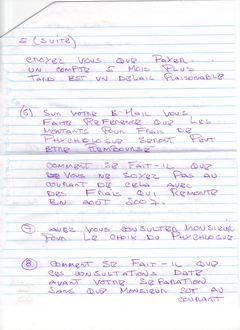 5 (SUITE)
CROYEZ VOUS QUE PAYER
UN COMPTE 5 MOIS PLUS
TARD EST UN DELAIS RAISONABLE
6 SUR VOTRE E-MAIL VOUS
FAITE REFERENCE QUE LES
MONTANTS POUR FRAIS DE
PHYCHOLOGUE SERONT PEUT
ETRE REMBOURSE
COMMENT SE FAIT-IL QUE
VOUS NE SOYEZ PAS AU
COURANT DE CELA AVEC
DES FRAIS QUI REMONTE
EN AOUT 2007.
7 AVEZ VOUS CONSULTER MONSIEUR
POUR LE CHOIX DU PHYCHOLOGUE
8 COMMENT SE FAIT-IL QUE
CES CONSULTATIONS DATE
AVANT VOTRE SEPARATION
SANS QUE MONSIEUR SOIT AU
COURANT